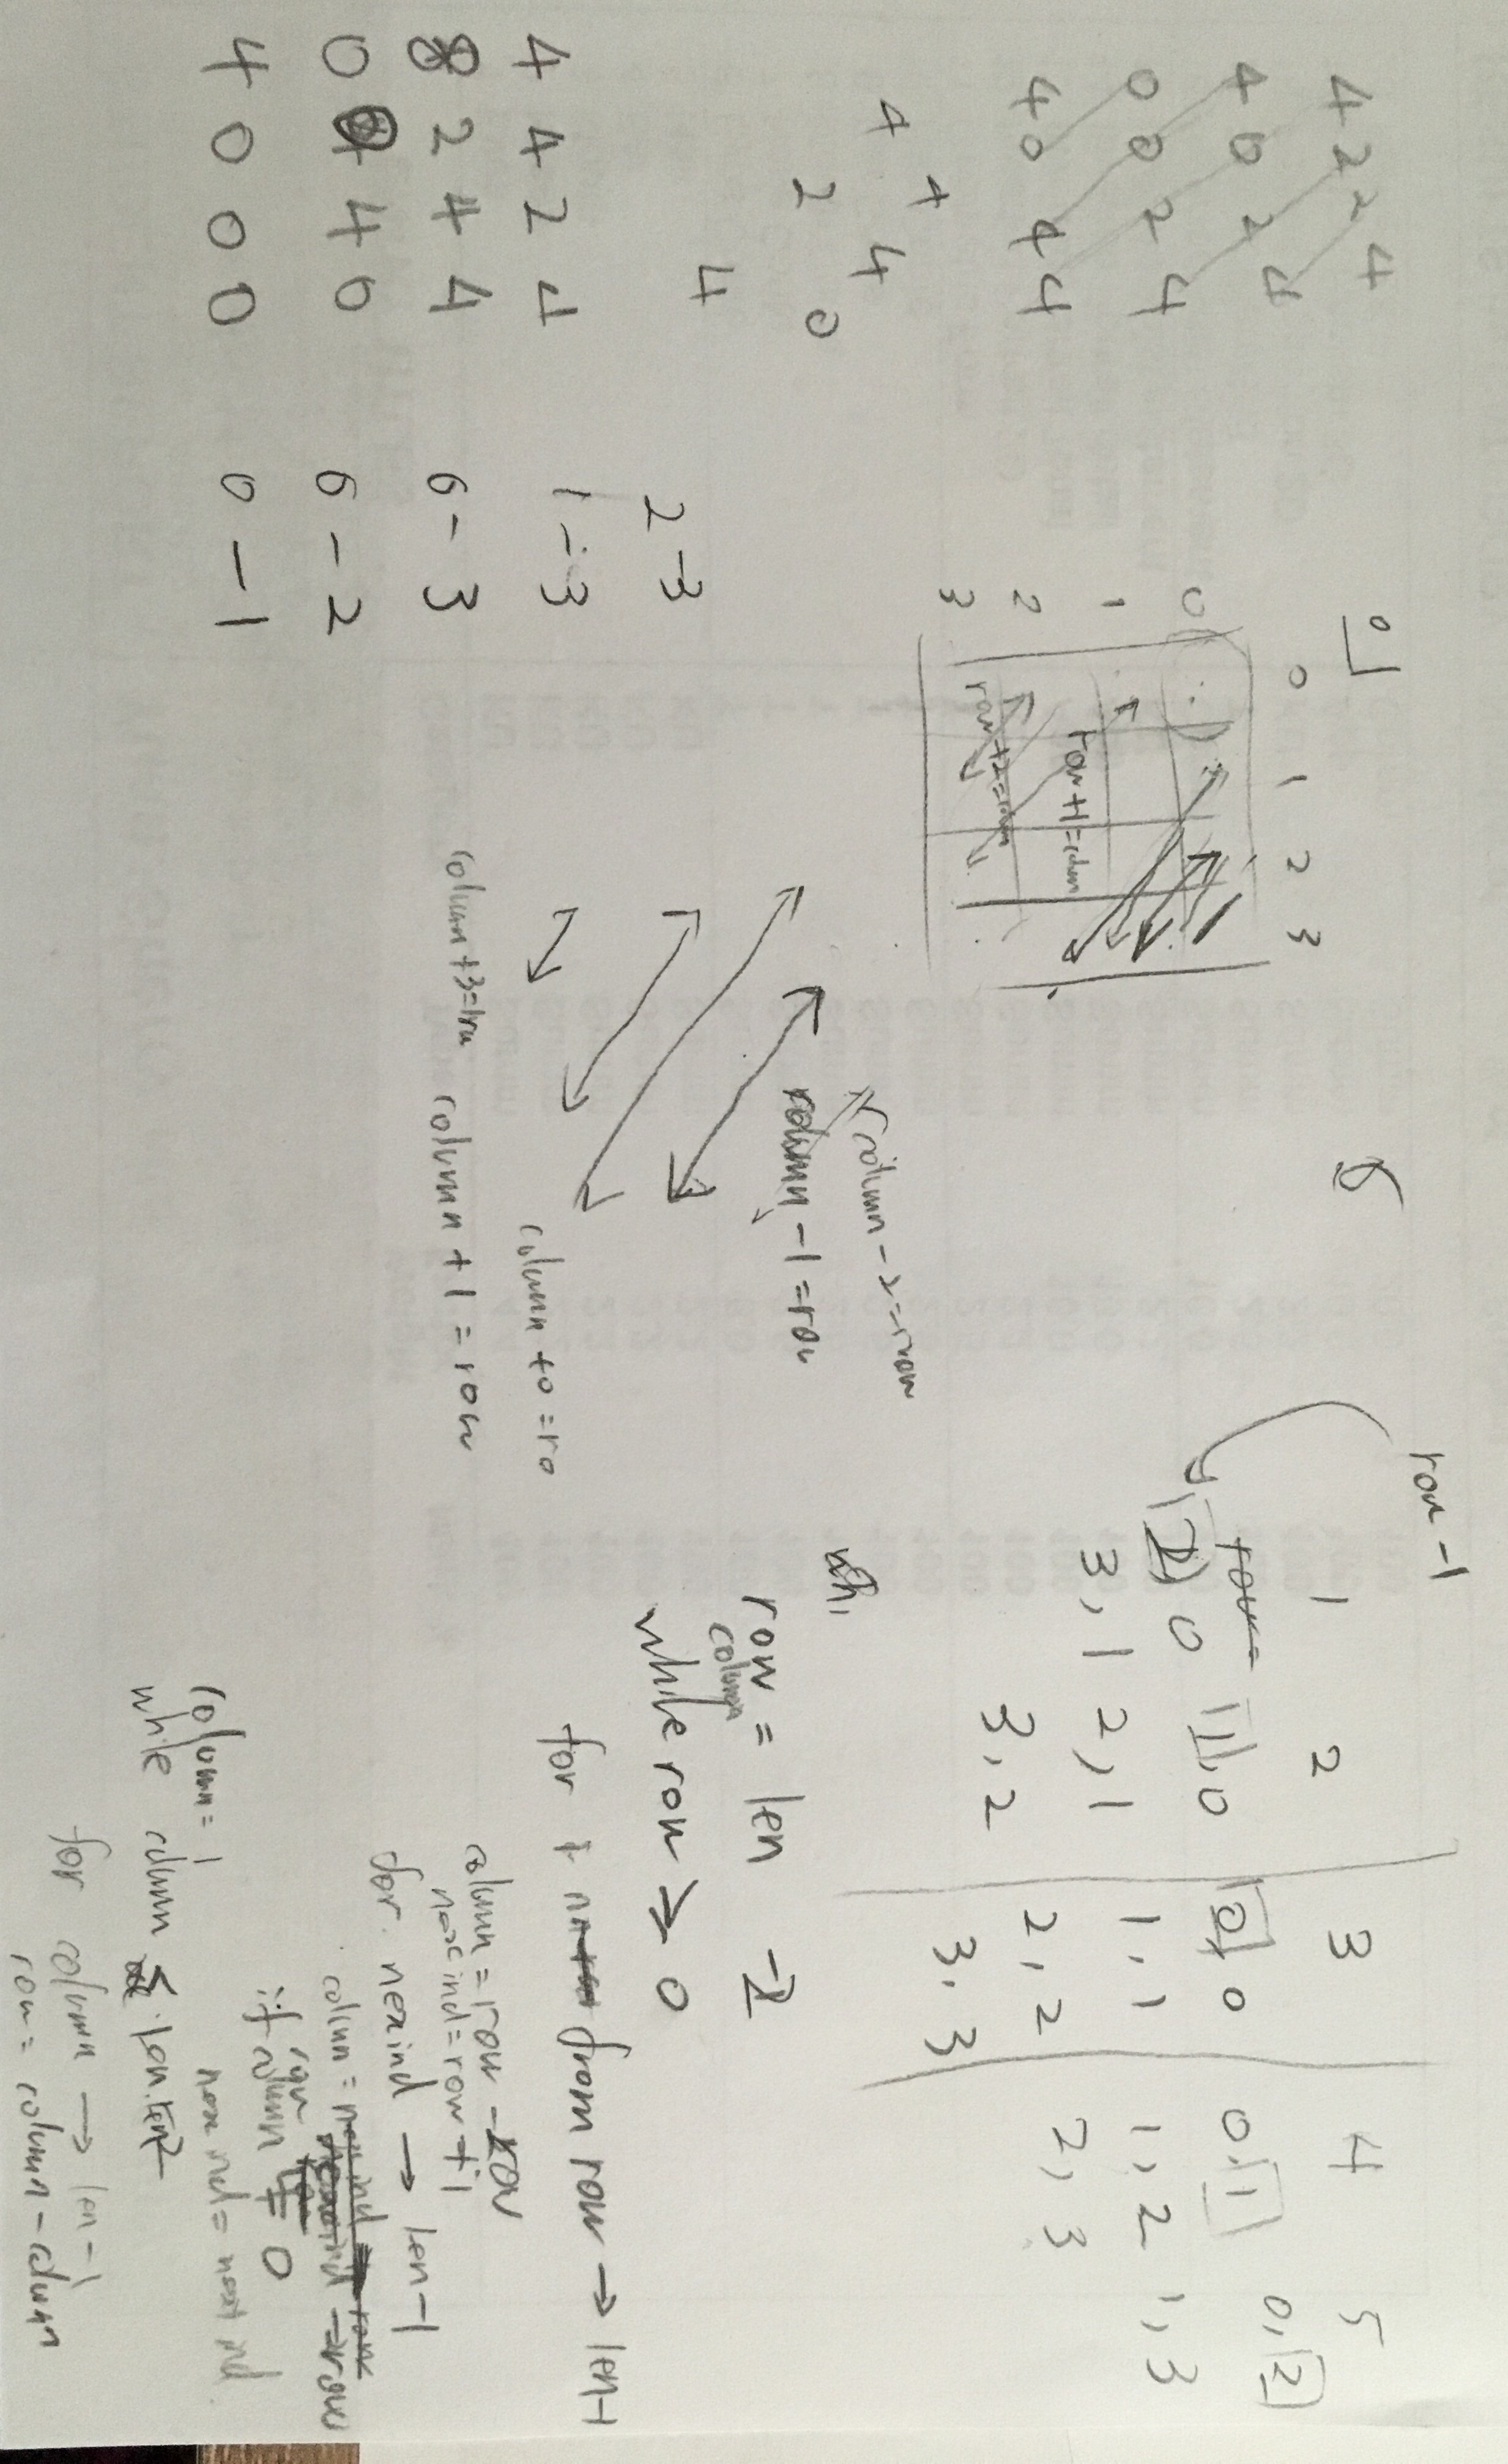 4 2 2 4
4 0 2 4
0 0 2 4
4 0 4 4
4 4
2 4 0
4
4 4 2 4
8 2 4 4
0 4 0
4 0 0 0
2-3
1-3
0-3
0-2
0-1
0 1 2 3
0
1
2
3
row+1=colum
row+2=colum
column-2=row
column-1=row
column+0=ro
column+1=row
column+3=row
row-1
1 2 3 4 5
row=
2,0
3,1
1,0
2,1
3,2
0,0
1,1
2,2
3,3
0,1
1,2
2,3
0,2
1,3
wh,
row = len -2
column
while row ≥ 0
for i from row → len-1
column = row - row
nexind = row + 1
for nexind → len-1
column = -row
if column = 0
row
column = 1
while column ≤ len
for column → len-1
row = column - column